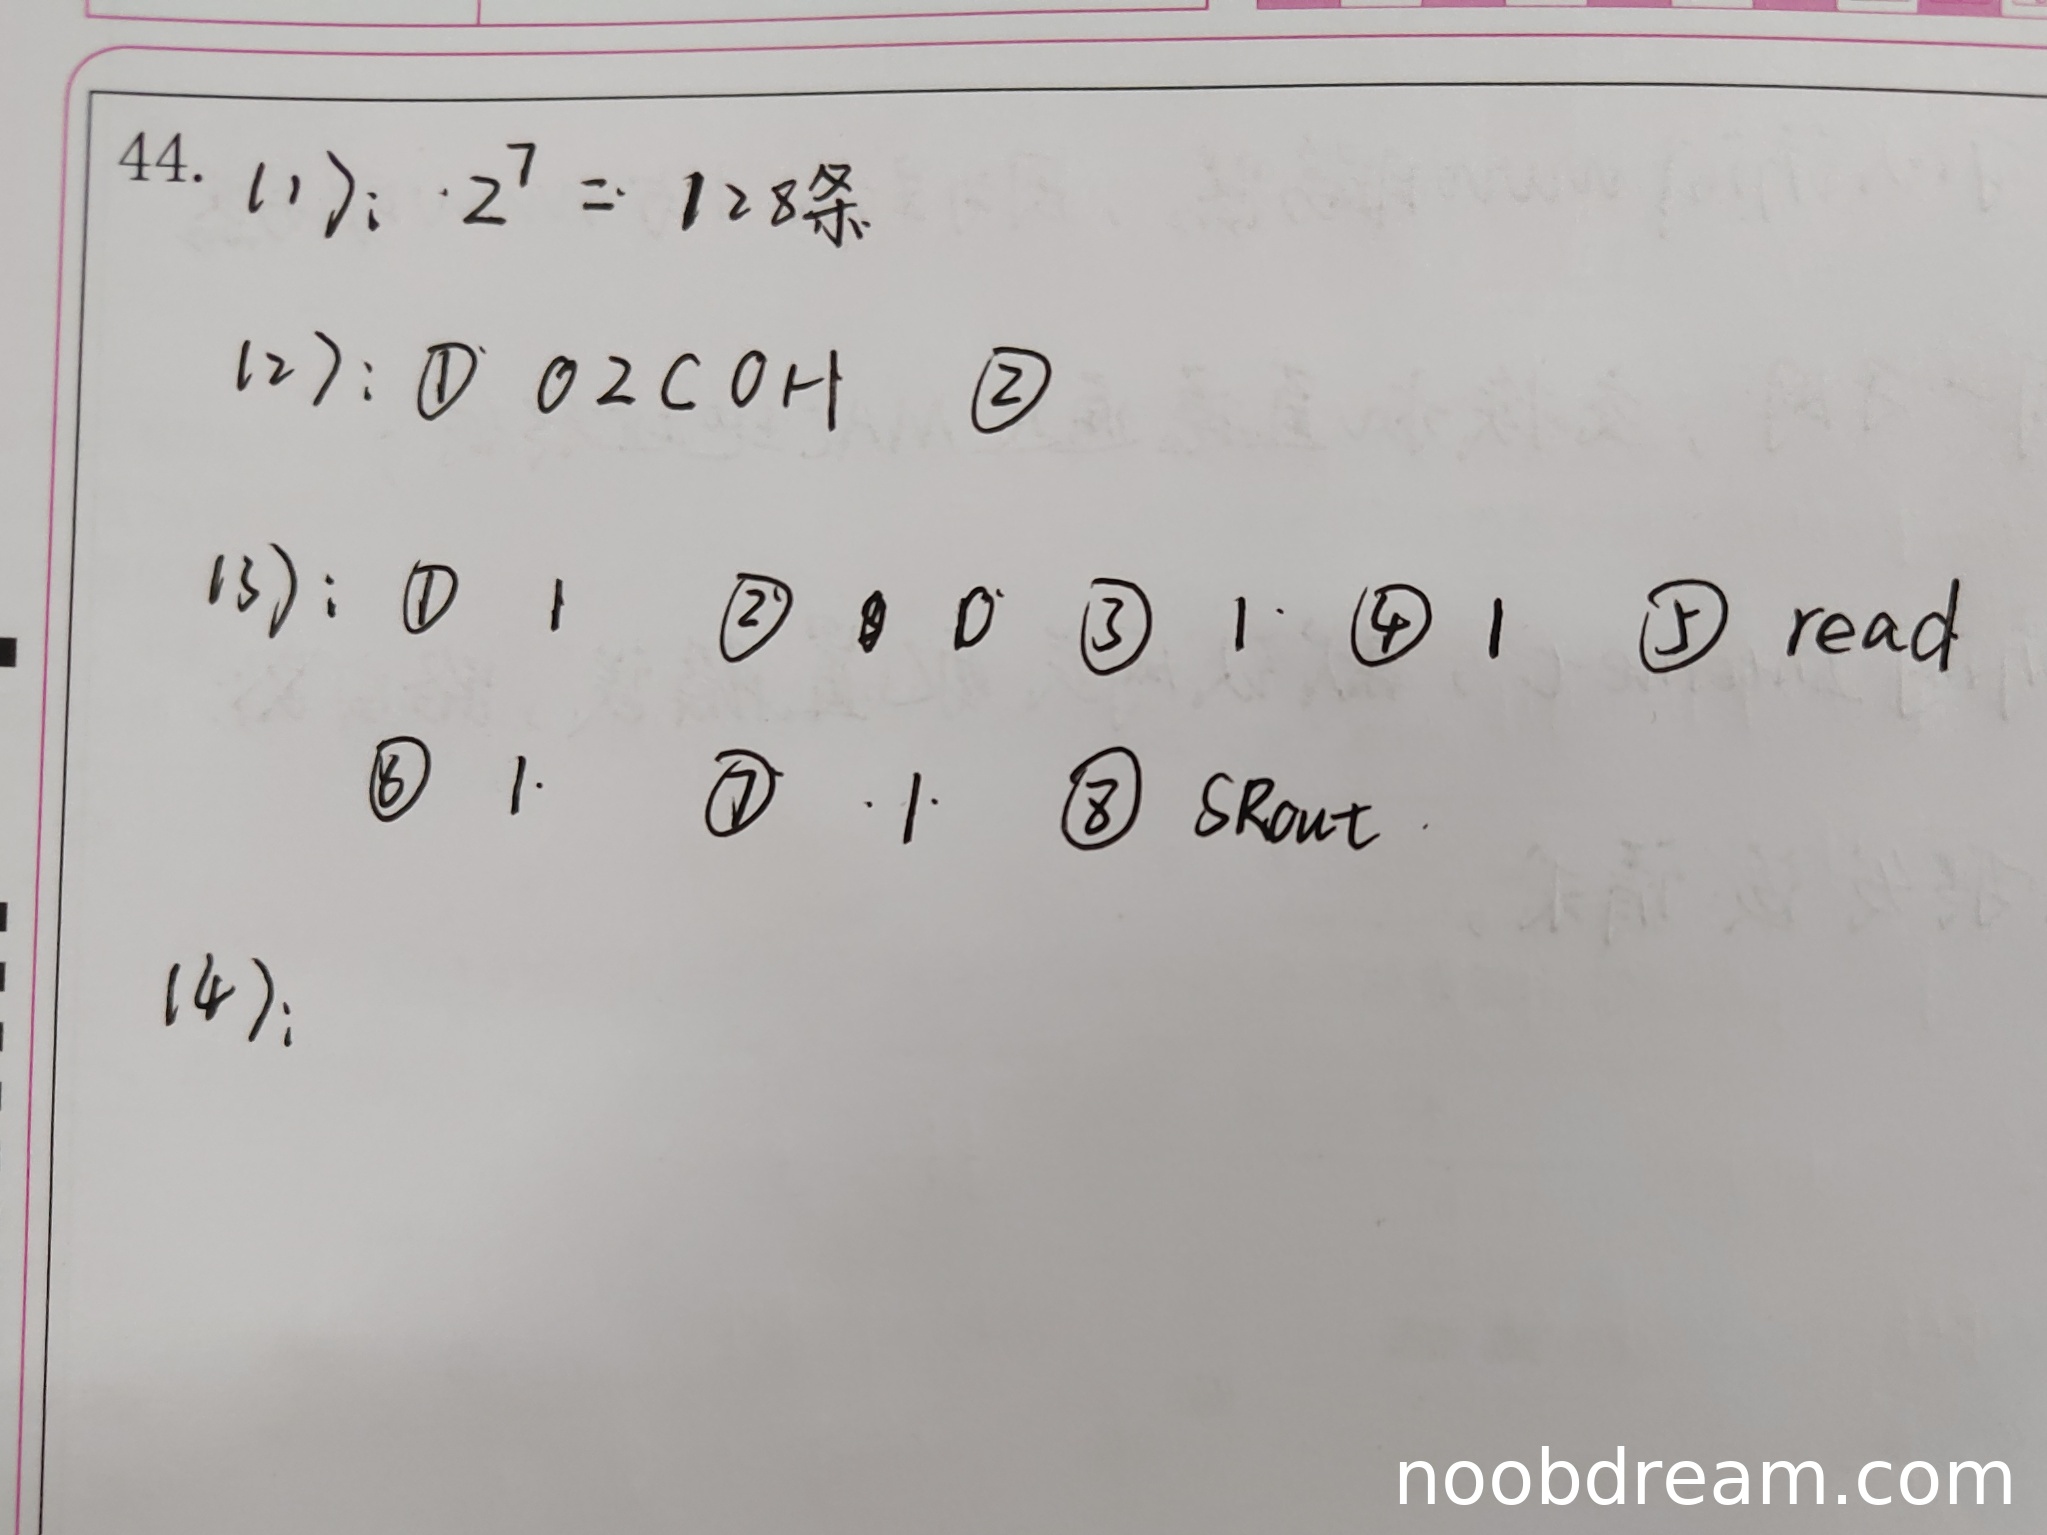 44. (1): 2⁷ = 128条
(2): ① 02C0H ②
(3): ① 1 ② 0 ③ 1 ④ 1 ⑤ read
⑥ 1 ⑦ 1 ⑧ SRout
(4):
noobdream.com